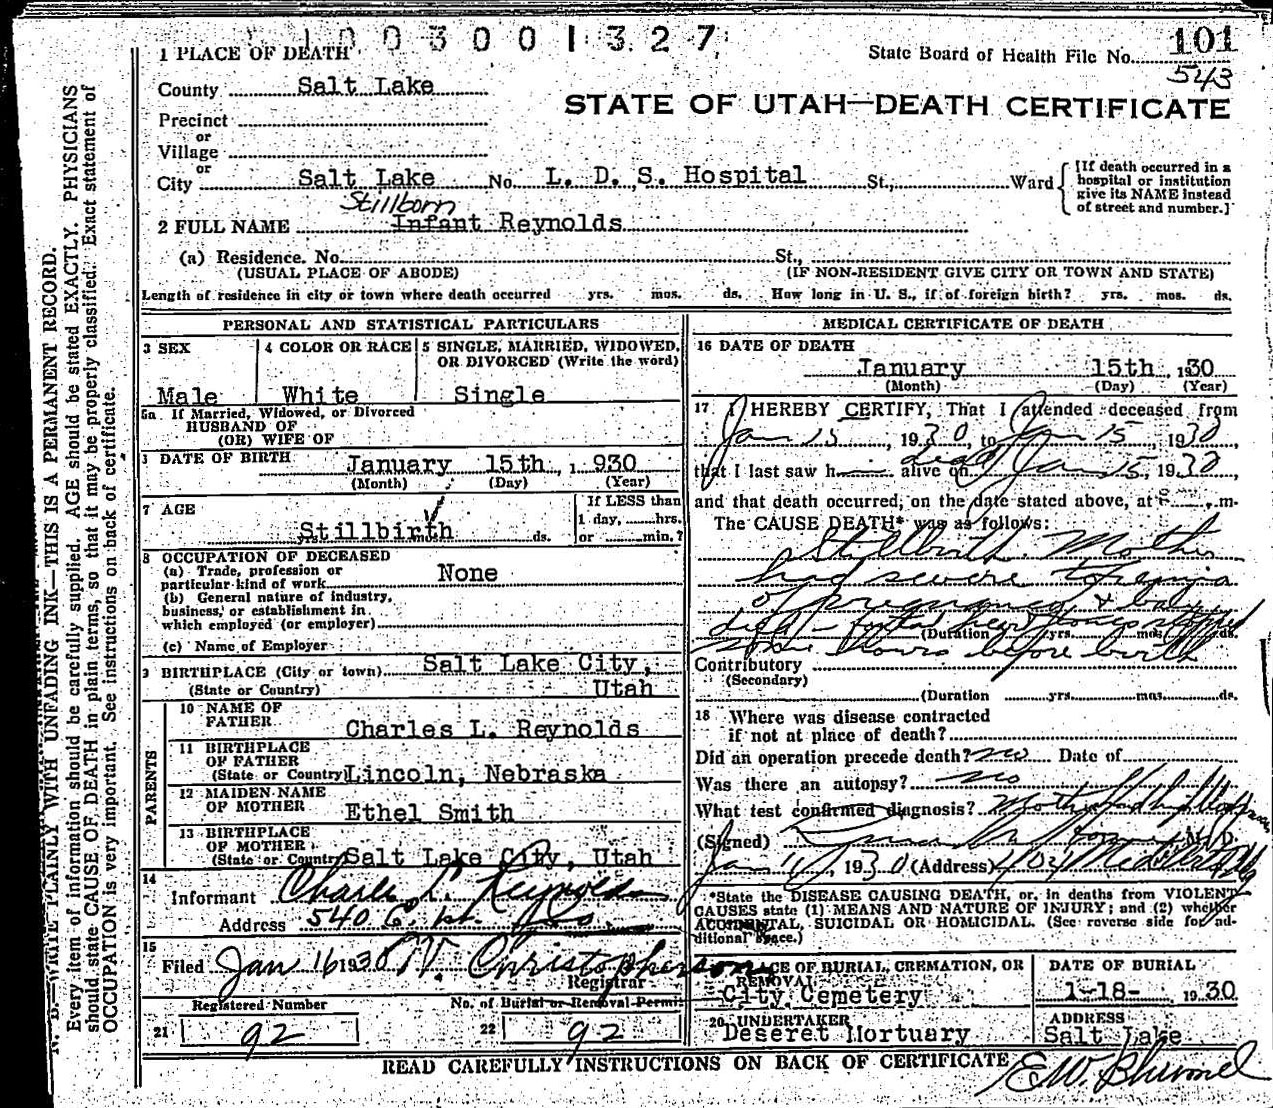 1003001327
State Board of Health File No. 101
543
1 PLACE OF DEATH
County Salt Lake
STATE OF UTAH—DEATH CERTIFICATE
Precinct
or
Village
or
City Salt Lake No. L. D. S. Hospital St., Ward
[If death occurred in a
hospital or institution
give its NAME instead
of street and number.]
Stillborn
2 FULL NAME Infant Reynolds
(a) Residence. No. St.,
(USUAL PLACE OF ABODE) (IF NON-RESIDENT GIVE CITY OR TOWN AND STATE)
Length of residence in city or town where death occurred yrs. mos. ds. How long in U. S., if of foreign birth? yrs. mos. ds.
PERSONAL AND STATISTICAL PARTICULARS
3 SEX 4 COLOR OR RACE 5 SINGLE, MARRIED, WIDOWED,
OR DIVORCED (Write the word)
Male White Single
5a If Married, Widowed, or Divorced
HUSBAND OF
(OR) WIFE OF
DATE OF BIRTH January 15th, 1930
(Month) (Day) (Year)
7 AGE If LESS than
1 day, hrs.
Stillbirth ds. or min.?
8 OCCUPATION OF DECEASED
(a) Trade, profession or
particular kind of work None
(b) General nature of industry,
business, or establishment in
which employed (or employer)
(c) Name of Employer
9 BIRTHPLACE (City or town) Salt Lake City,
(State or Country) Utah
PARENTS
10 NAME OF
FATHER Charles L. Reynolds
11 BIRTHPLACE
OF FATHER
(State or Country) Lincoln, Nebraska
12 MAIDEN NAME
OF MOTHER Ethel Smith
13 BIRTHPLACE
OF MOTHER
(State or Country) Salt Lake City, Utah
14
Informant Charles L. Reynolds
Address 540 6
15
Filed Jan 16 1930 W. Christopherson
Registrar
Registered Number No. of Burial or Removal Permit
21 92 22 92
MEDICAL CERTIFICATE OF DEATH
16 DATE OF DEATH
January 15th, 1930
(Month) (Day) (Year)
17 I HEREBY CERTIFY, That I attended deceased from
Jan 15, 1930, to Jan 15 1930,
that I last saw h alive on dead Jan 15, 1930
and that death occurred, on the date stated above, at m.
The CAUSE DEATH* was as follows:
Stillbirth. Mother
had severe toxemia
of pregnancy & baby
died - foetal heart tones stopped
(Duration yrs. mos. ds.
some hours before birth
Contributory
(Secondary)
(Duration yrs. mos. ds.
18 Where was disease contracted
if not at place of death?
Did an operation precede death? no Date of
Was there an autopsy? no
What test confirmed diagnosis?
(Signed) M. D.
Jan 16, 1930 (Address) 404
*State the DISEASE CAUSING DEATH, or, in deaths from VIOLENT
CAUSES state (1) MEANS AND NATURE OF INJURY; and (2) whether
ACCIDENTAL, SUICIDAL OR HOMICIDAL. (See reverse side for ad-
ditional space.)
PLACE OF BURIAL, CREMATION, OR
REMOVAL DATE OF BURIAL
City Cemetery 1-18- 1930
20 UNDERTAKER ADDRESS
Deseret Mortuary Salt Lake
READ CAREFULLY INSTRUCTIONS ON BACK OF CERTIFICATE
N. B.—WRITE PLAINLY WITH UNFADING INK—THIS IS A PERMANENT RECORD.
Every item of information should be carefully supplied. AGE should be stated EXACTLY. PHYSICIANS
should state CAUSE OF DEATH in plain terms, so that it may be properly classified. Exact statement of
OCCUPATION is very important. See instructions on back of certificate.